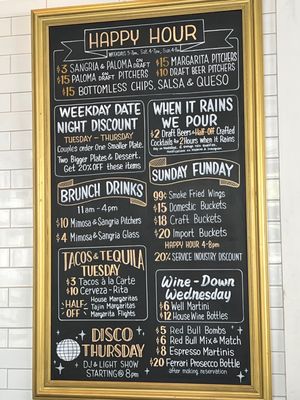 HAPPY HOUR
$3 SANGRIA & PALOMA ON DRAFT
$15 PALOMA ON DRAFT PITCHERS
$15 MARGARITA PITCHERS
$10 DRAFT BEER PITCHERS
$15 BOTTOMLESS CHIPS, SALSA & QUESO
WEEKDAY DATE
NIGHT DISCOUNT
TUESDAY - THURSDAY
Couples order One Smaller Plate,
Two Bigger Plates & Dessert,
Get 20% OFF these items
WHEN IT RAINS
WE POUR
$2 Draft Beers & Half-OFF Crafted
Cocktails for 2 Hours when it Rains
BRUNCH DRINKS
11am - 4pm
$10 Mimosa & Sangria Pitchers
$4 Mimosa & Sangria Glass
SUNDAY FUNDAY
99¢ Smoke Fried Wings
$15 Domestic Buckets
$18 Craft Buckets
$20 Import Buckets
HAPPY HOUR 4-8pm
20% SERVICE INDUSTRY DISCOUNT
TACOS & TEQUILA
TUESDAY
$3 Tacos à la Carte
$10 Cerveza-Rita
$ HALF-OFF
House Margaritas
Tajin Margaritas
Margarita Flights
Wine-Down
Wednesday
$6 Well Martini
$12 House Wine Bottles
DISCO
THURSDAY
DJ & LIGHT SHOW
STARTING @ 8pm
$5 Red Bull Bombs
$6 Red Bull Mix & Match
$8 Espresso Martinis
$20 Ferrari Prosecco Bottle
after making reservation